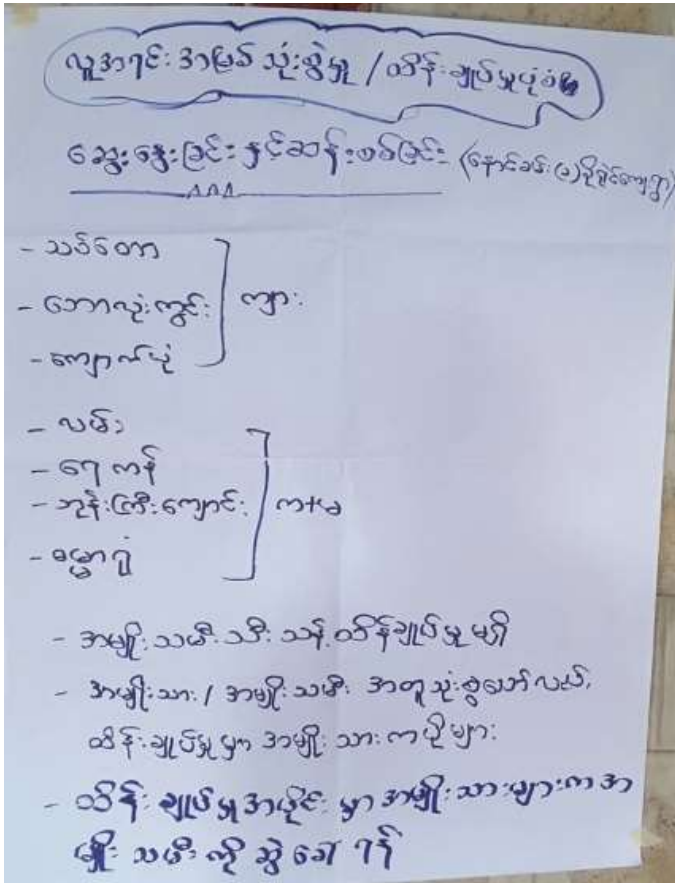 လူအရင်းအမြစ် သုံးစွဲမှု / ထိန်းချုပ်မှုပုံစံ
ဆွေးနွေးခြင်း နှင့်ဆန်းစစ်ခြင်း (နောင်ခမ်း (မ)
- သစ်တော
- ဘောလုံးကွင်း ကျား
- ကျောက်ပုံ
- လမ်း
- ရေကန်
- ဘုန်းကြီးကျောင်း က+မ
- ဓမ္မာရုံ
- အမျိုးသမီးသီးသန့်ထိန်းချုပ်မှုမရှိ
- အမျိုးသား / အမျိုးသမီး အတူသုံးစွဲသော်လည်း
ထိန်းချုပ်မှုမှာ အမျိုးသားကပိုများ
- ထိန်းချုပ်မှုအပိုင်းမှာ အမျိုးသားများက အ
မျိုးသမီးကို ဆွဲခေါ်ရန်